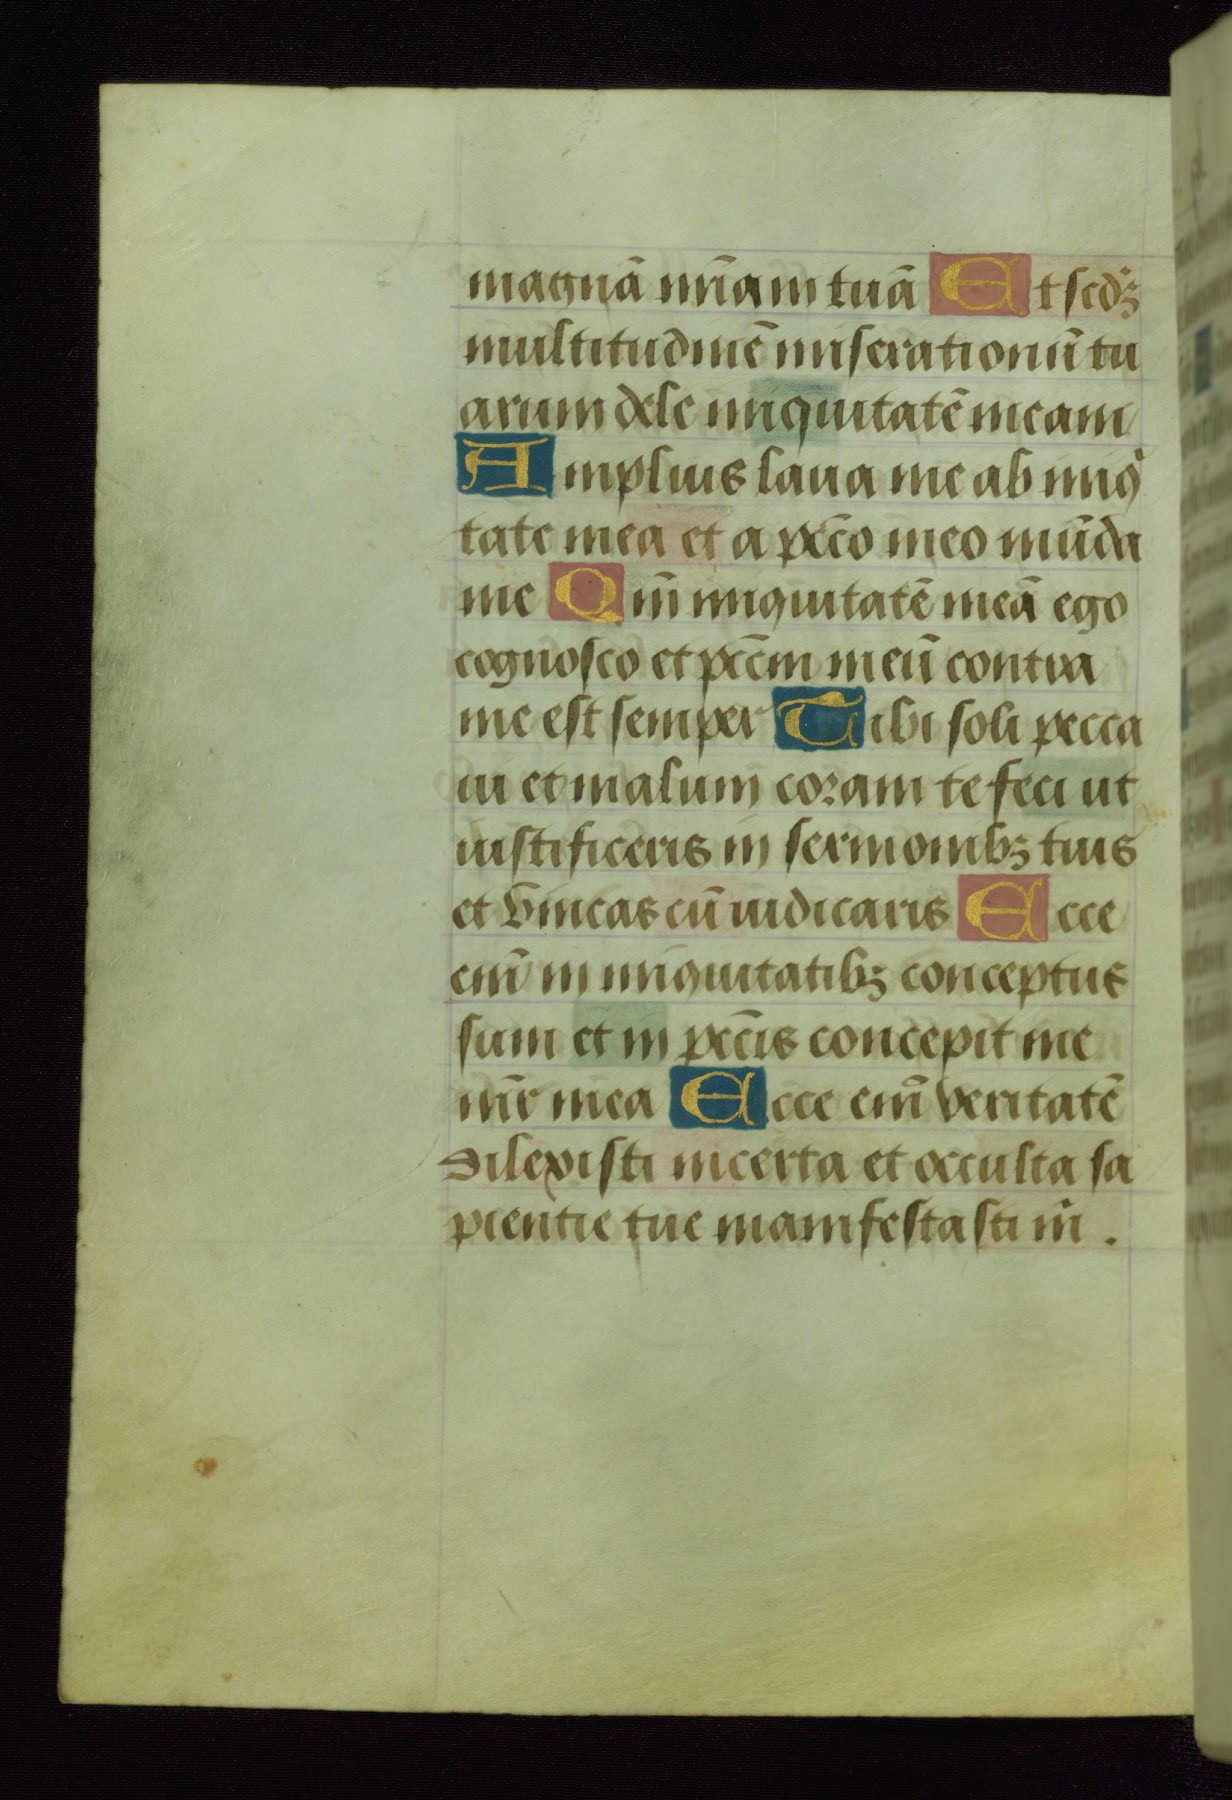 magnā mīam tuā Et scdꝫ
multitudinē miserationū tu
arum dele iniquitatē meam
Amplius laua me ab iniq
tate mea et a pctō meo mūda
me Qm̄ iniquitatē meā ego
cognosco et pctm̄ meū contra
me est semper Tibi soli pecca
ui et malum coram te feci ut
iustificeris in sermonibꝫ tuis
et vincas cū iudicaris Ecce
enī in iniquitatibꝫ conceptus
sum et in pctīs concepit me
mr̄ mea Ecce enī veritatē
dilexisti incerta et occulta sa
pientie tue manifestasti m̄ .